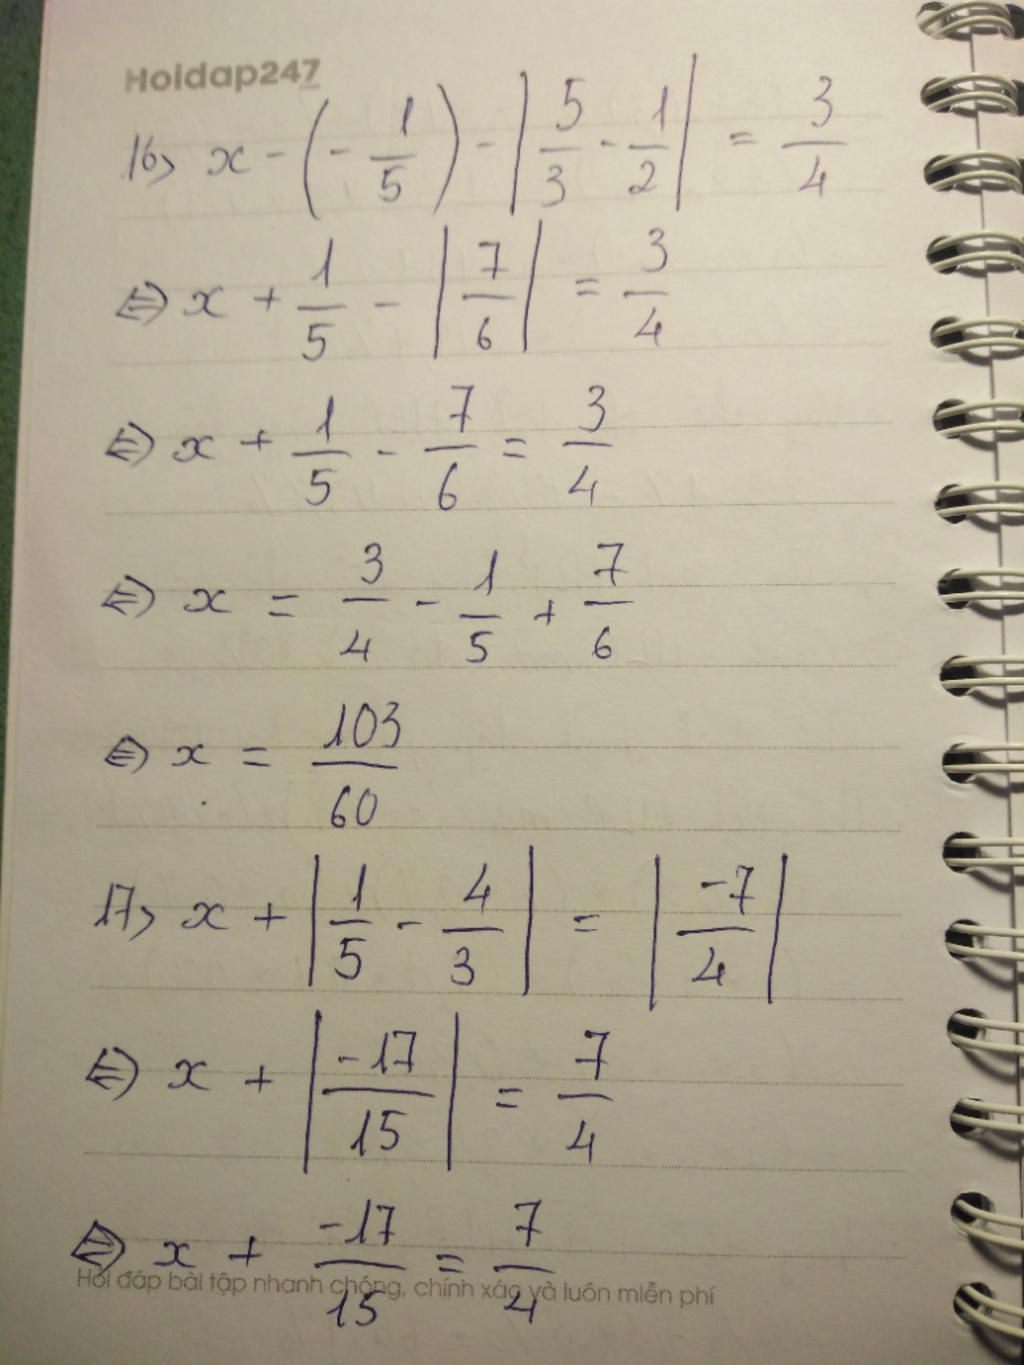 Hoidap247
16) x - (- 1/5) - |5/3 - 1/2| = 3/4
⇔ x + 1/5 - |7/6| = 3/4
⇔ x + 1/5 - 7/6 = 3/4
⇔ x = 3/4 - 1/5 + 7/6
⇔ x = 103/60
17) x + |1/5 - 4/3| = |-7/4|
⇔ x + |-17/15| = 7/4
⇔ x + -17/15 = 7/4
Hỏi đáp bài tập nhanh chóng, chính xác và luôn miễn phí